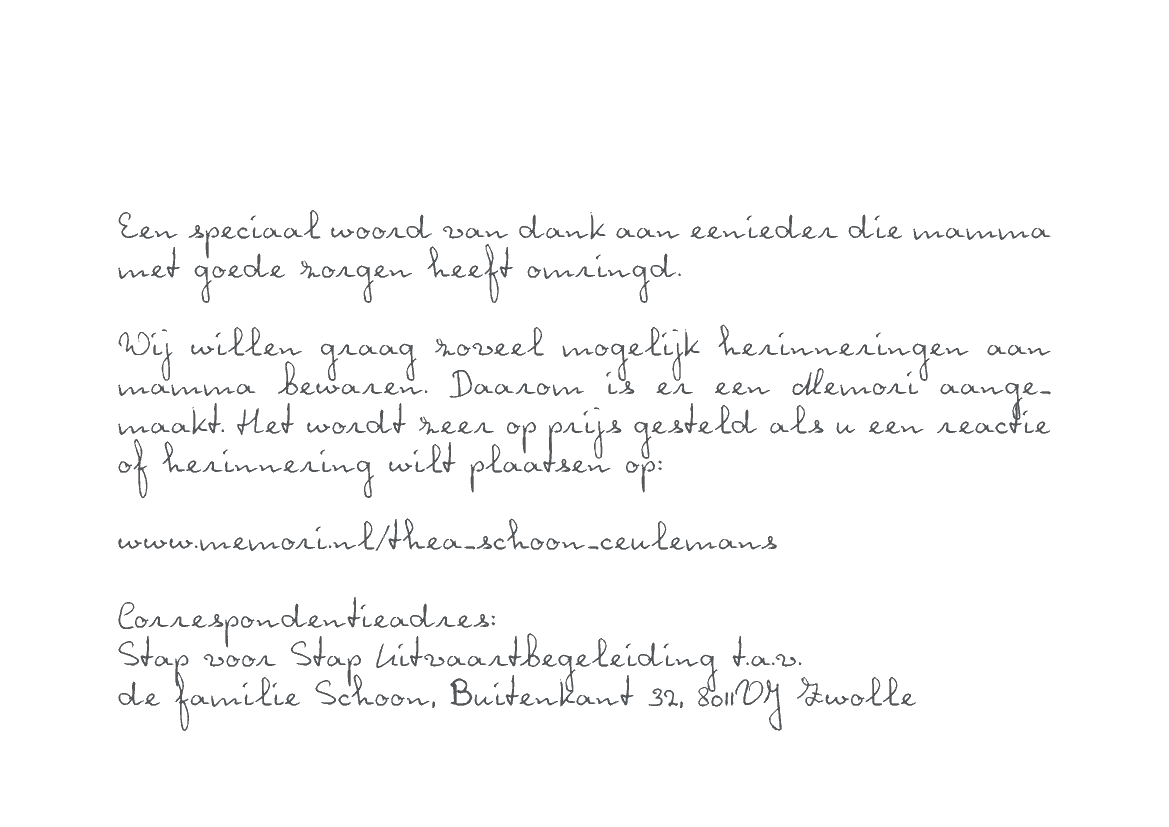 Een speciaal woord van dank aan eenieder die mamma
met goede zorgen heeft omringd.
Wij willen graag zoveel mogelijk herinneringen aan
mamma bewaren. Daarom is er een Memori aange-
maakt. Het wordt zeer op prijs gesteld als u een reactie
of herinnering wilt plaatsen op:
www.memori.nl/thea_schoon_ceulemans
Correspondentieadres:
Stap voor Stap Uitvaartbegeleiding t.a.v.
de familie Schoon, Buitenkant 32, 8011VJ Zwolle